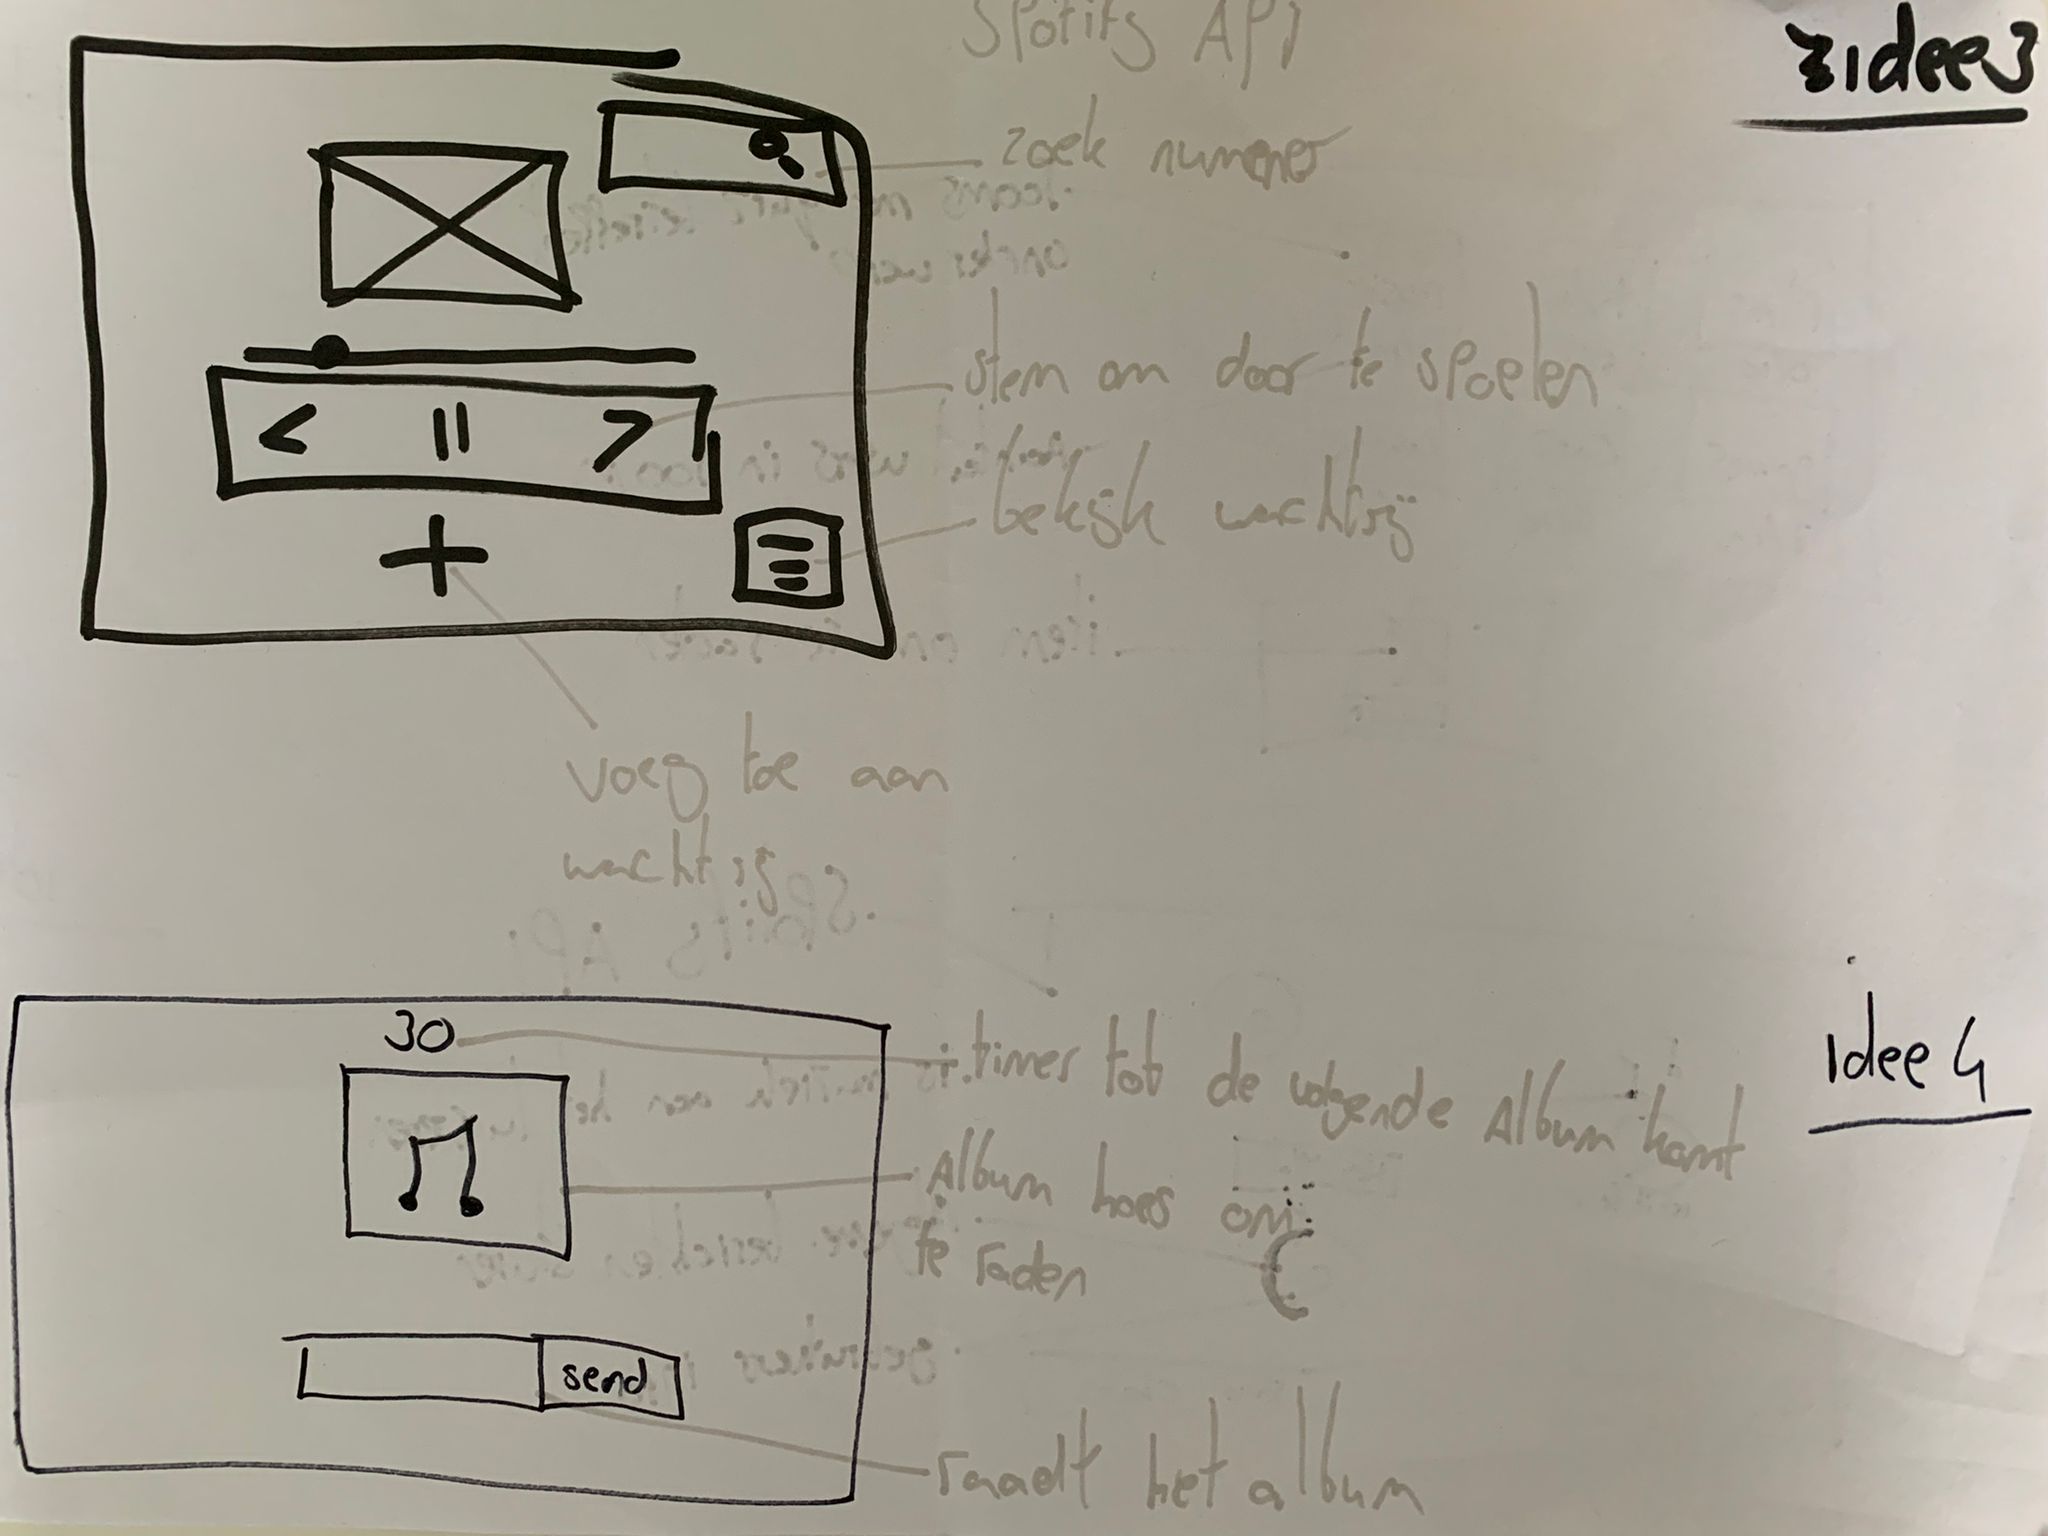 Spotify API
idee 3
zoek nummer
stem om door te spoelen
bekijk wachtrij
voeg toe aan
wachtrij
idee 4
30
timer tot de volgende Album komt
Album hoes om
te raden
send
raadt het album